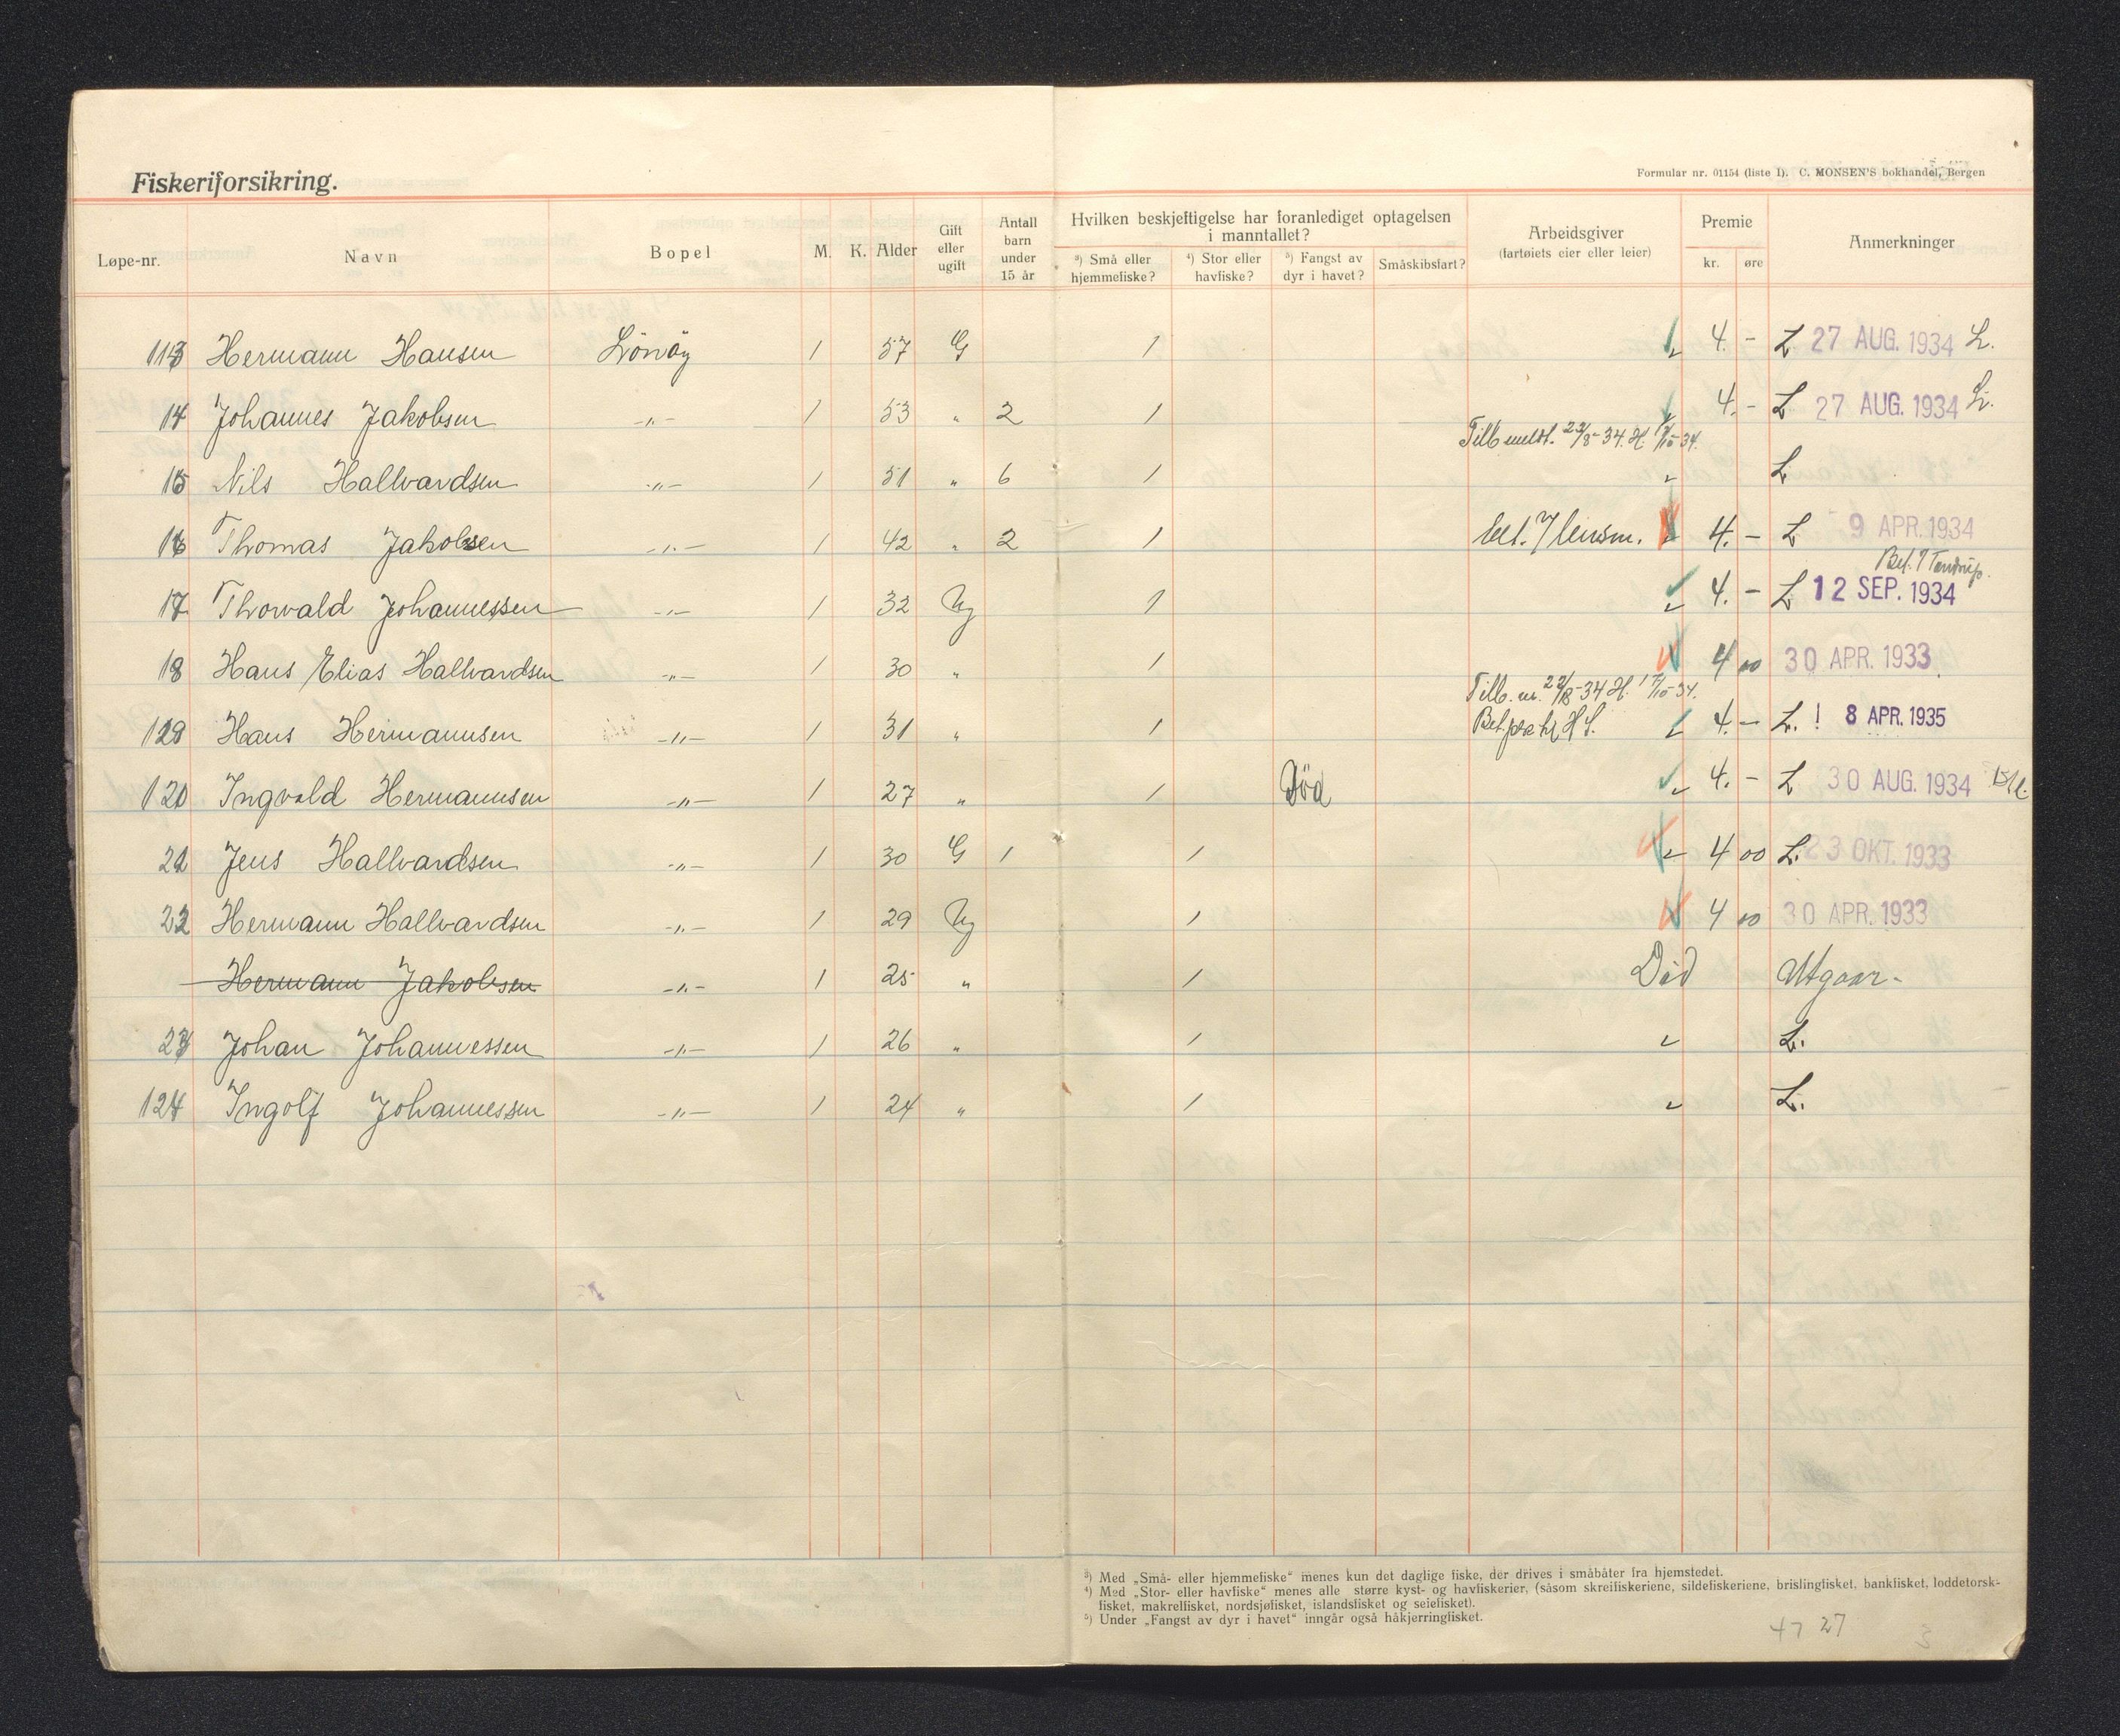 Fiskeriforsikring.
Formular nr. 01154 (liste I). C. MONSEN'S bokhandel, Bergen
Løpe-nr. Navn Bopel M. K. Alder Gift eller ugift Antall barn under 15 år Hvilken beskjeftigelse har foranlediget optagelsen i manntallet? ³) Små eller hjemmefiske? ⁴) Stor eller havfiske? ⁵) Fangst av dyr i havet? Småskibsfart? Arbeidsgiver (fartøiets eier eller leier) Premie kr. øre Anmerkninger
113 Hermann Hansen Lönöy 1 57 G 1 4. - L 27 AUG. 1934 L.
14 Johannes Jakobsen -"- 1 53 " 2 1 4. - L 27 AUG. 1934 L.
Tilb meldt. 22/8-34. H. 17/10-34.
15 Nils Hallvardsen -"- 1 51 " 6 1 L
16 Thomas Jakobsen -"- 1 42 " 2 1 4. - L 9 APR. 1934
17 Thorvald Johannessen -"- 1 32 Ug 1 4. - L 12 SEP. 1934
18 Hans Elias Hallvardsen -"- 1 30 " 1 4 00 30 APR. 1933
Tilb. m. 22/8-34 H. 17/10-34.
129 Hans Hermannsen -"- 1 31 " 1 4. - L. ! 8 APR. 1935
120 Ingvald Hermannsen -"- 1 27 " 1 Död 4. - L 30 AUG. 1934
21 Jens Hallvardsen -"- 1 30 G 1 1 4 00 L. 23 OKT. 1933
22 Hermann Hallvardsen -"- 1 29 Ug 1 4 00 30 APR. 1933
Hermann Jakobsen -"- 1 25 " 1 Död Utgaar-
23 Johan Johannessen -"- 1 26 " 1 L.
124 Ingolf Johannessen -"- 1 24 " 1 L.
³) Med „Små- eller hjemmefiske“ menes kun det daglige fiske, der drives i småbåter fra hjemstedet.
⁴) Med „Stor- eller havfiske“ menes alle større kyst- og havfiskerier, (såsom skreifiskeriene, sildefiskeriene, brislingfisket, bankfisket, loddetorsk-
fisket, makrellfisket, nordsjøfisket, islandsfisket og seiefisket).
⁵) Under „Fangst av dyr i havet“ inngår også håkjerringfisket.
47 27 3